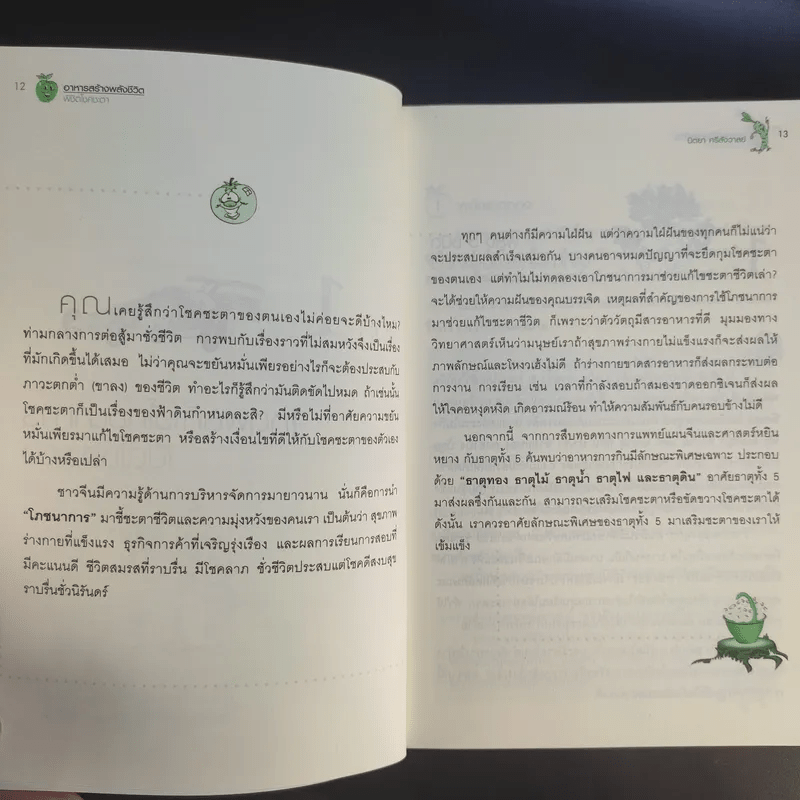 12
อาหารสร้างพลังชีวิต
พิชิตโชคชะตา
คุณเคยรู้สึกว่าโชคชะตาของตนเองไม่ค่อยจะดีบ้างไหม?
ท่ามกลางการต่อสู้มาชั่วชีวิต การพบกับเรื่องราวที่ไม่สมหวังจึงเป็นเรื่อง
ที่มักเกิดขึ้นได้เสมอ ไม่ว่าคุณจะขยันหมั่นเพียรอย่างไรก็จะต้องประสบกับ
ภาวะตกต่ำ (ขาลง) ของชีวิต ทำอะไรก็รู้สึกว่ามันติดขัดไปหมด ถ้าเช่นนั้น
โชคชะตาก็เป็นเรื่องของฟ้าดินกำหนดละสิ? มีหรือไม่ที่อาศัยความขยัน
หมั่นเพียรมาแก้ไขโชคชะตา หรือสร้างเงื่อนไขที่ดีให้กับโชคชะตาของตัวเอง
ได้บ้างหรือเปล่า
ชาวจีนมีความรู้ด้านการบริหารจัดการมายาวนาน นั่นก็คือการนำ
“โภชนาการ” มาชี้ชะตาชีวิตและความมุ่งหวังของคนเรา เป็นต้นว่า สุขภาพ
ร่างกายที่แข็งแรง ธุรกิจการค้าที่เจริญรุ่งเรือง และผลการเรียนการสอบที่
มีคะแนนดี ชีวิตสมรสที่ราบรื่น มีโชคลาภ ชั่วชีวิตประสบแต่โชคดีสงบสุข
ราบรื่นชั่วนิรันดร์
นิตยา ศรีสังวาลย์
13
ทุกๆ คนต่างก็มีความใฝ่ฝัน แต่ว่าความใฝ่ฝันของทุกคนก็ไม่แน่ว่า
จะประสบผลสำเร็จเสมอกัน บางคนอาจหมดปัญญาที่จะยึดกุมโชคชะตา
ของตนเอง แต่ทำไมไม่ทดลองเอาโภชนาการมาช่วยแก้ไขชะตาชีวิตเล่า?
จะได้ช่วยให้ความฝันของคุณบรรเจิด เหตุผลที่สำคัญของการใช้โภชนาการ
มาช่วยแก้ไขชะตาชีวิต ก็เพราะว่าตัววัตถุมีสารอาหารที่ดี มุมมองทาง
วิทยาศาสตร์เห็นว่ามนุษย์เราถ้าสุขภาพร่างกายไม่แข็งแรงก็จะส่งผลให้
ภาพลักษณ์และโหงวเฮ้งไม่ดี ถ้าร่างกายขาดสารอาหารก็ส่งผลกระทบต่อ
การงาน การเรียน เช่น เวลาที่กำลังสอบถ้าสมองขาดออกซิเจนก็ส่งผล
ให้ใจคอหงุดหงิด เกิดอารมณ์ร้อน ทำให้ความสัมพันธ์กับคนรอบข้างไม่ดี
นอกจากนี้ จากการสืบทอดทางการแพทย์แผนจีนและศาสตร์หยิน
หยาง กับธาตุทั้ง 5 ค้นพบว่าอาหารการกินมีลักษณะพิเศษเฉพาะ ประกอบ
ด้วย “ธาตุทอง ธาตุไม้ ธาตุน้ำ ธาตุไฟ และธาตุดิน” อาศัยธาตุทั้ง 5
มาส่งผลซึ่งกันและกัน สามารถจะเสริมโชคชะตาหรือขัดขวางโชคชะตาได้
ดังนั้น เราควรอาศัยลักษณะพิเศษของธาตุทั้ง 5 มาเสริมชะตาของเราให้
เข้มแข็ง